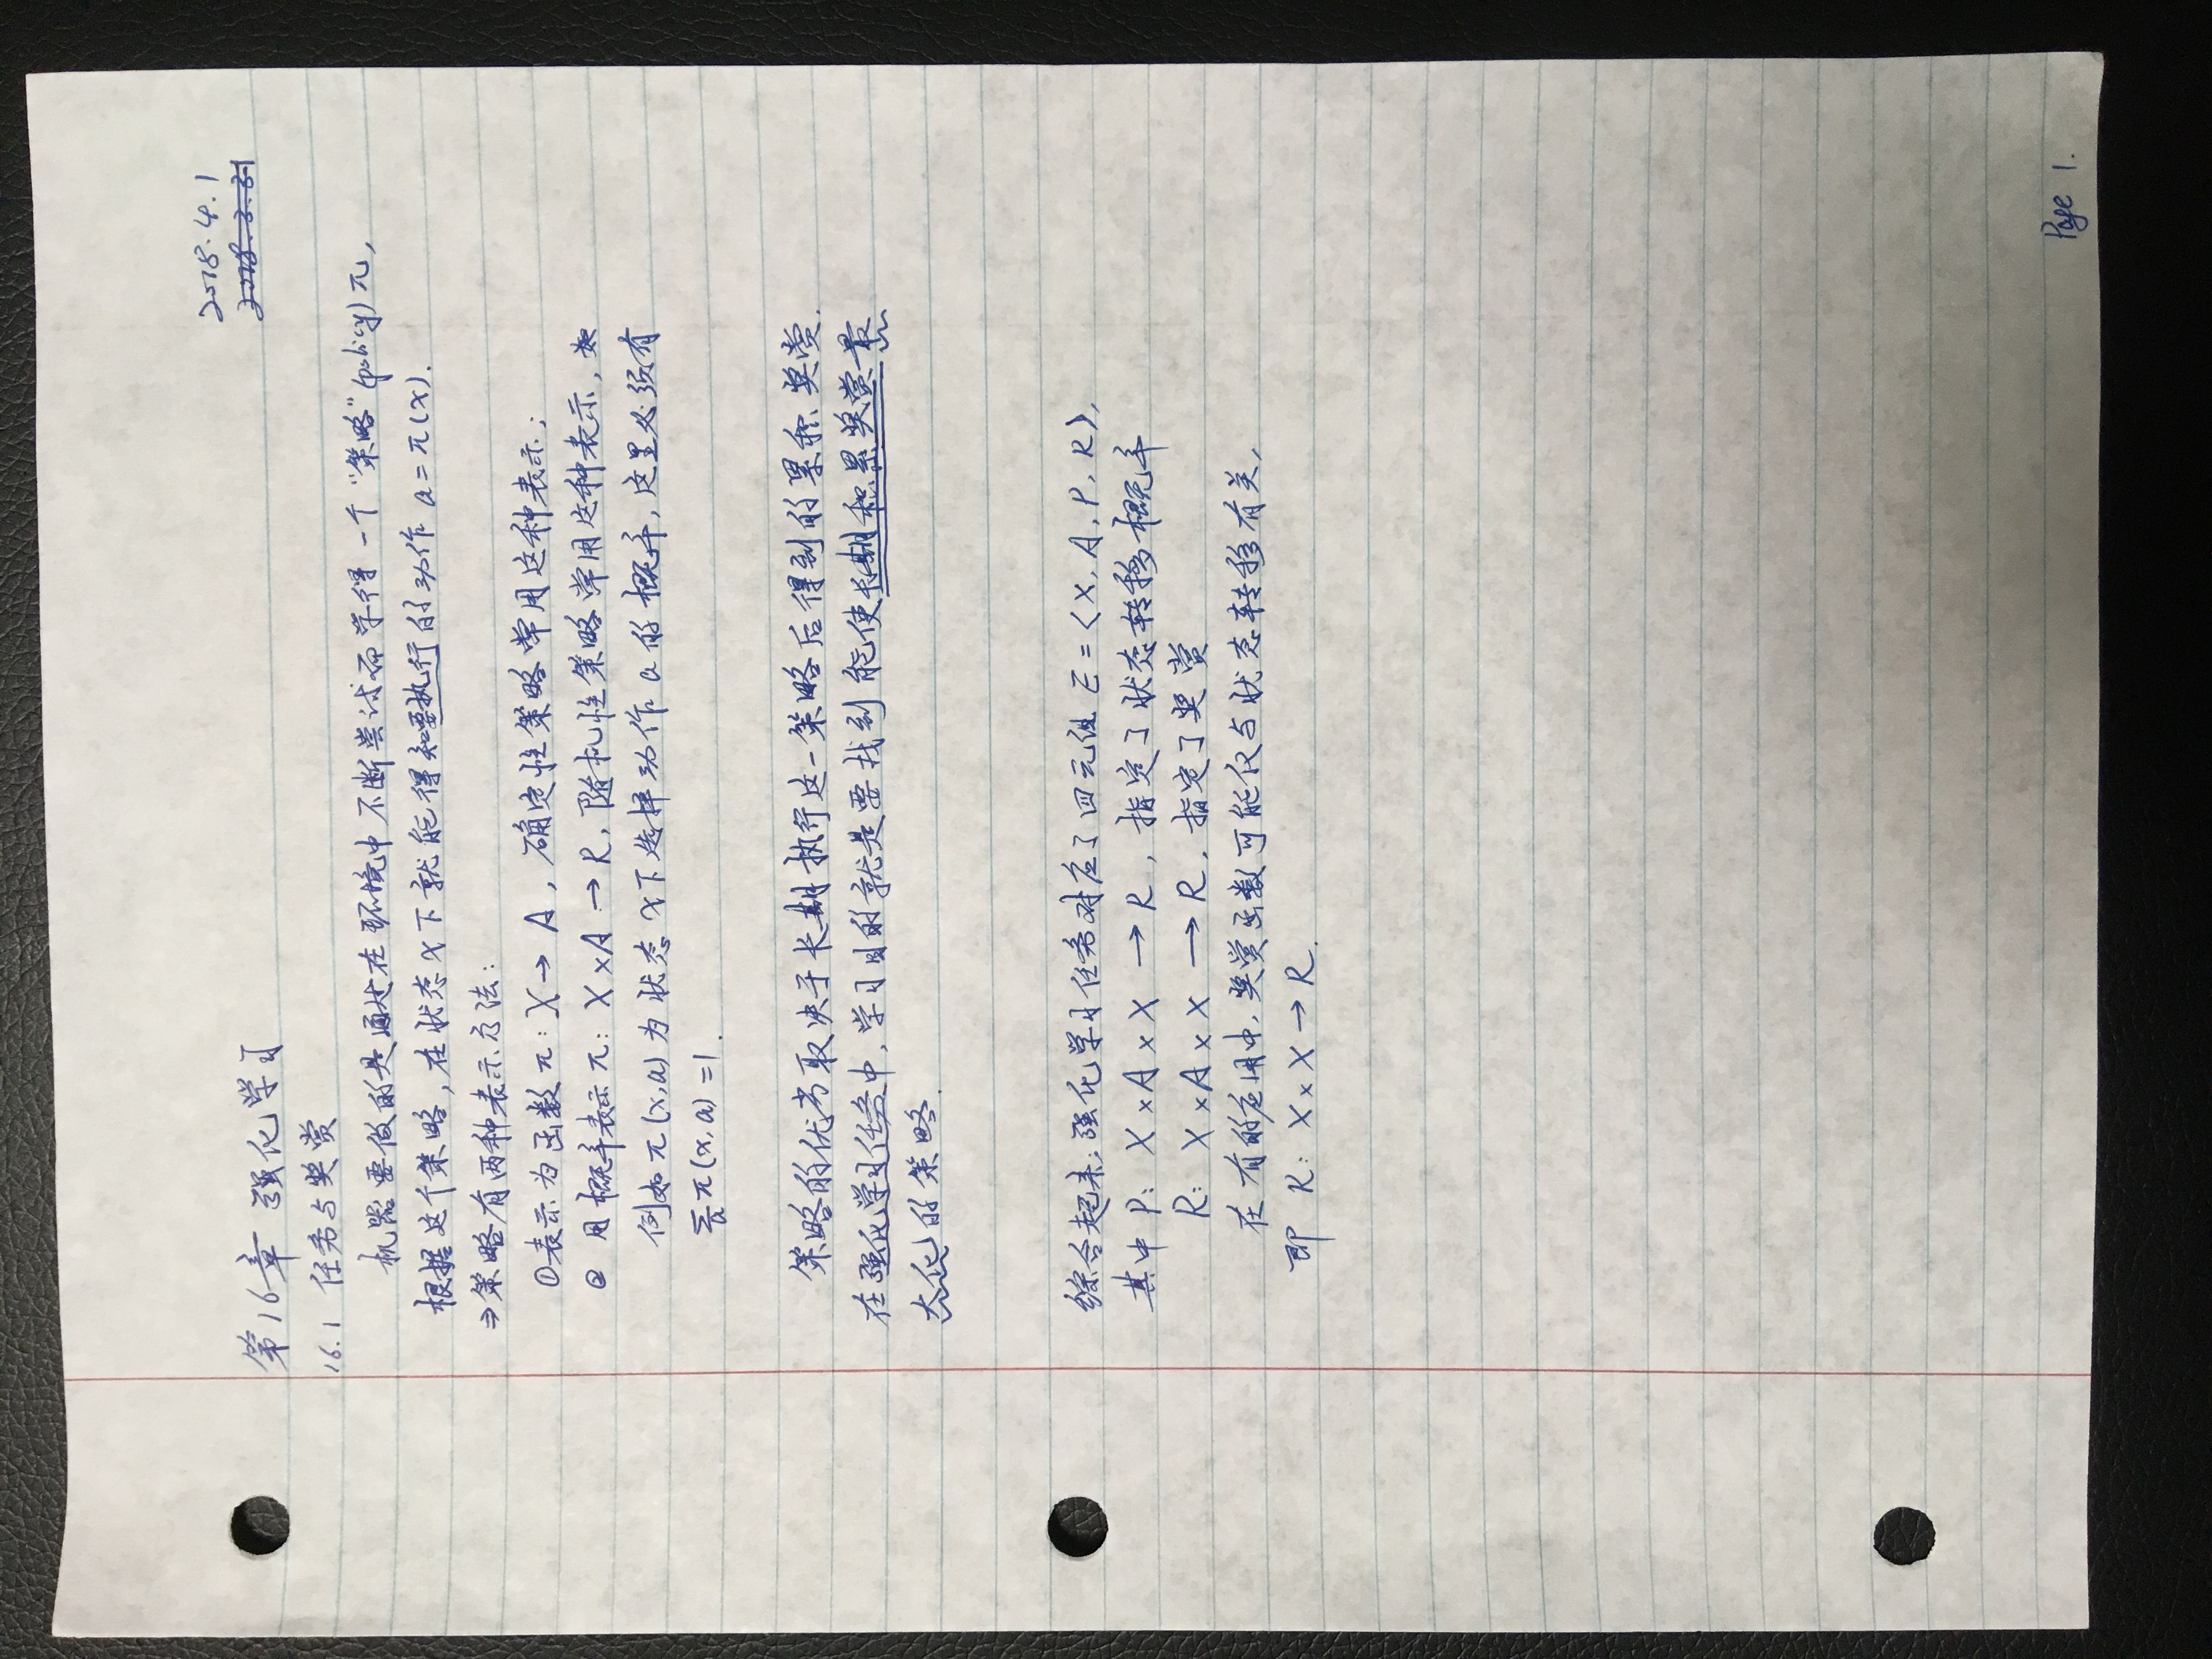 2018.4.1
2018.3.31
第16章 强化学习
16.1 任务与奖赏
机器要做的是通过在环境中不断尝试而学得一个“策略”(policy) π,
根据这个策略, 在状态 x 下就能得知要执行的动作 a = π(x).
⇒策略有两种表示方法:
①表示为函数 π: X → A, 确定性策略常用这种表示;
② 用概率表示 π: X × A → R, 随机性策略常用这种表示,
例如 π(x, a) 为状态 x 下选择动作 a 的概率, 这里必须有
∑a π(x, a) = 1.
策略的优劣取决于长期执行这一策略后得到的累积奖赏.
在强化学习任务中, 学习目的就是要找到能使长期积累奖赏最
大化的策略.
综合起来, 强化学习任务对应了四元组 E = 〈X, A, P, R〉,
其中 P: X × A × X → R, 指定了状态转移概率
R: X × A × X → R, 指定了奖赏
在有的应用中, 奖赏函数可能仅与状态转移有关,
即 R: X × X → R.
Page 1.